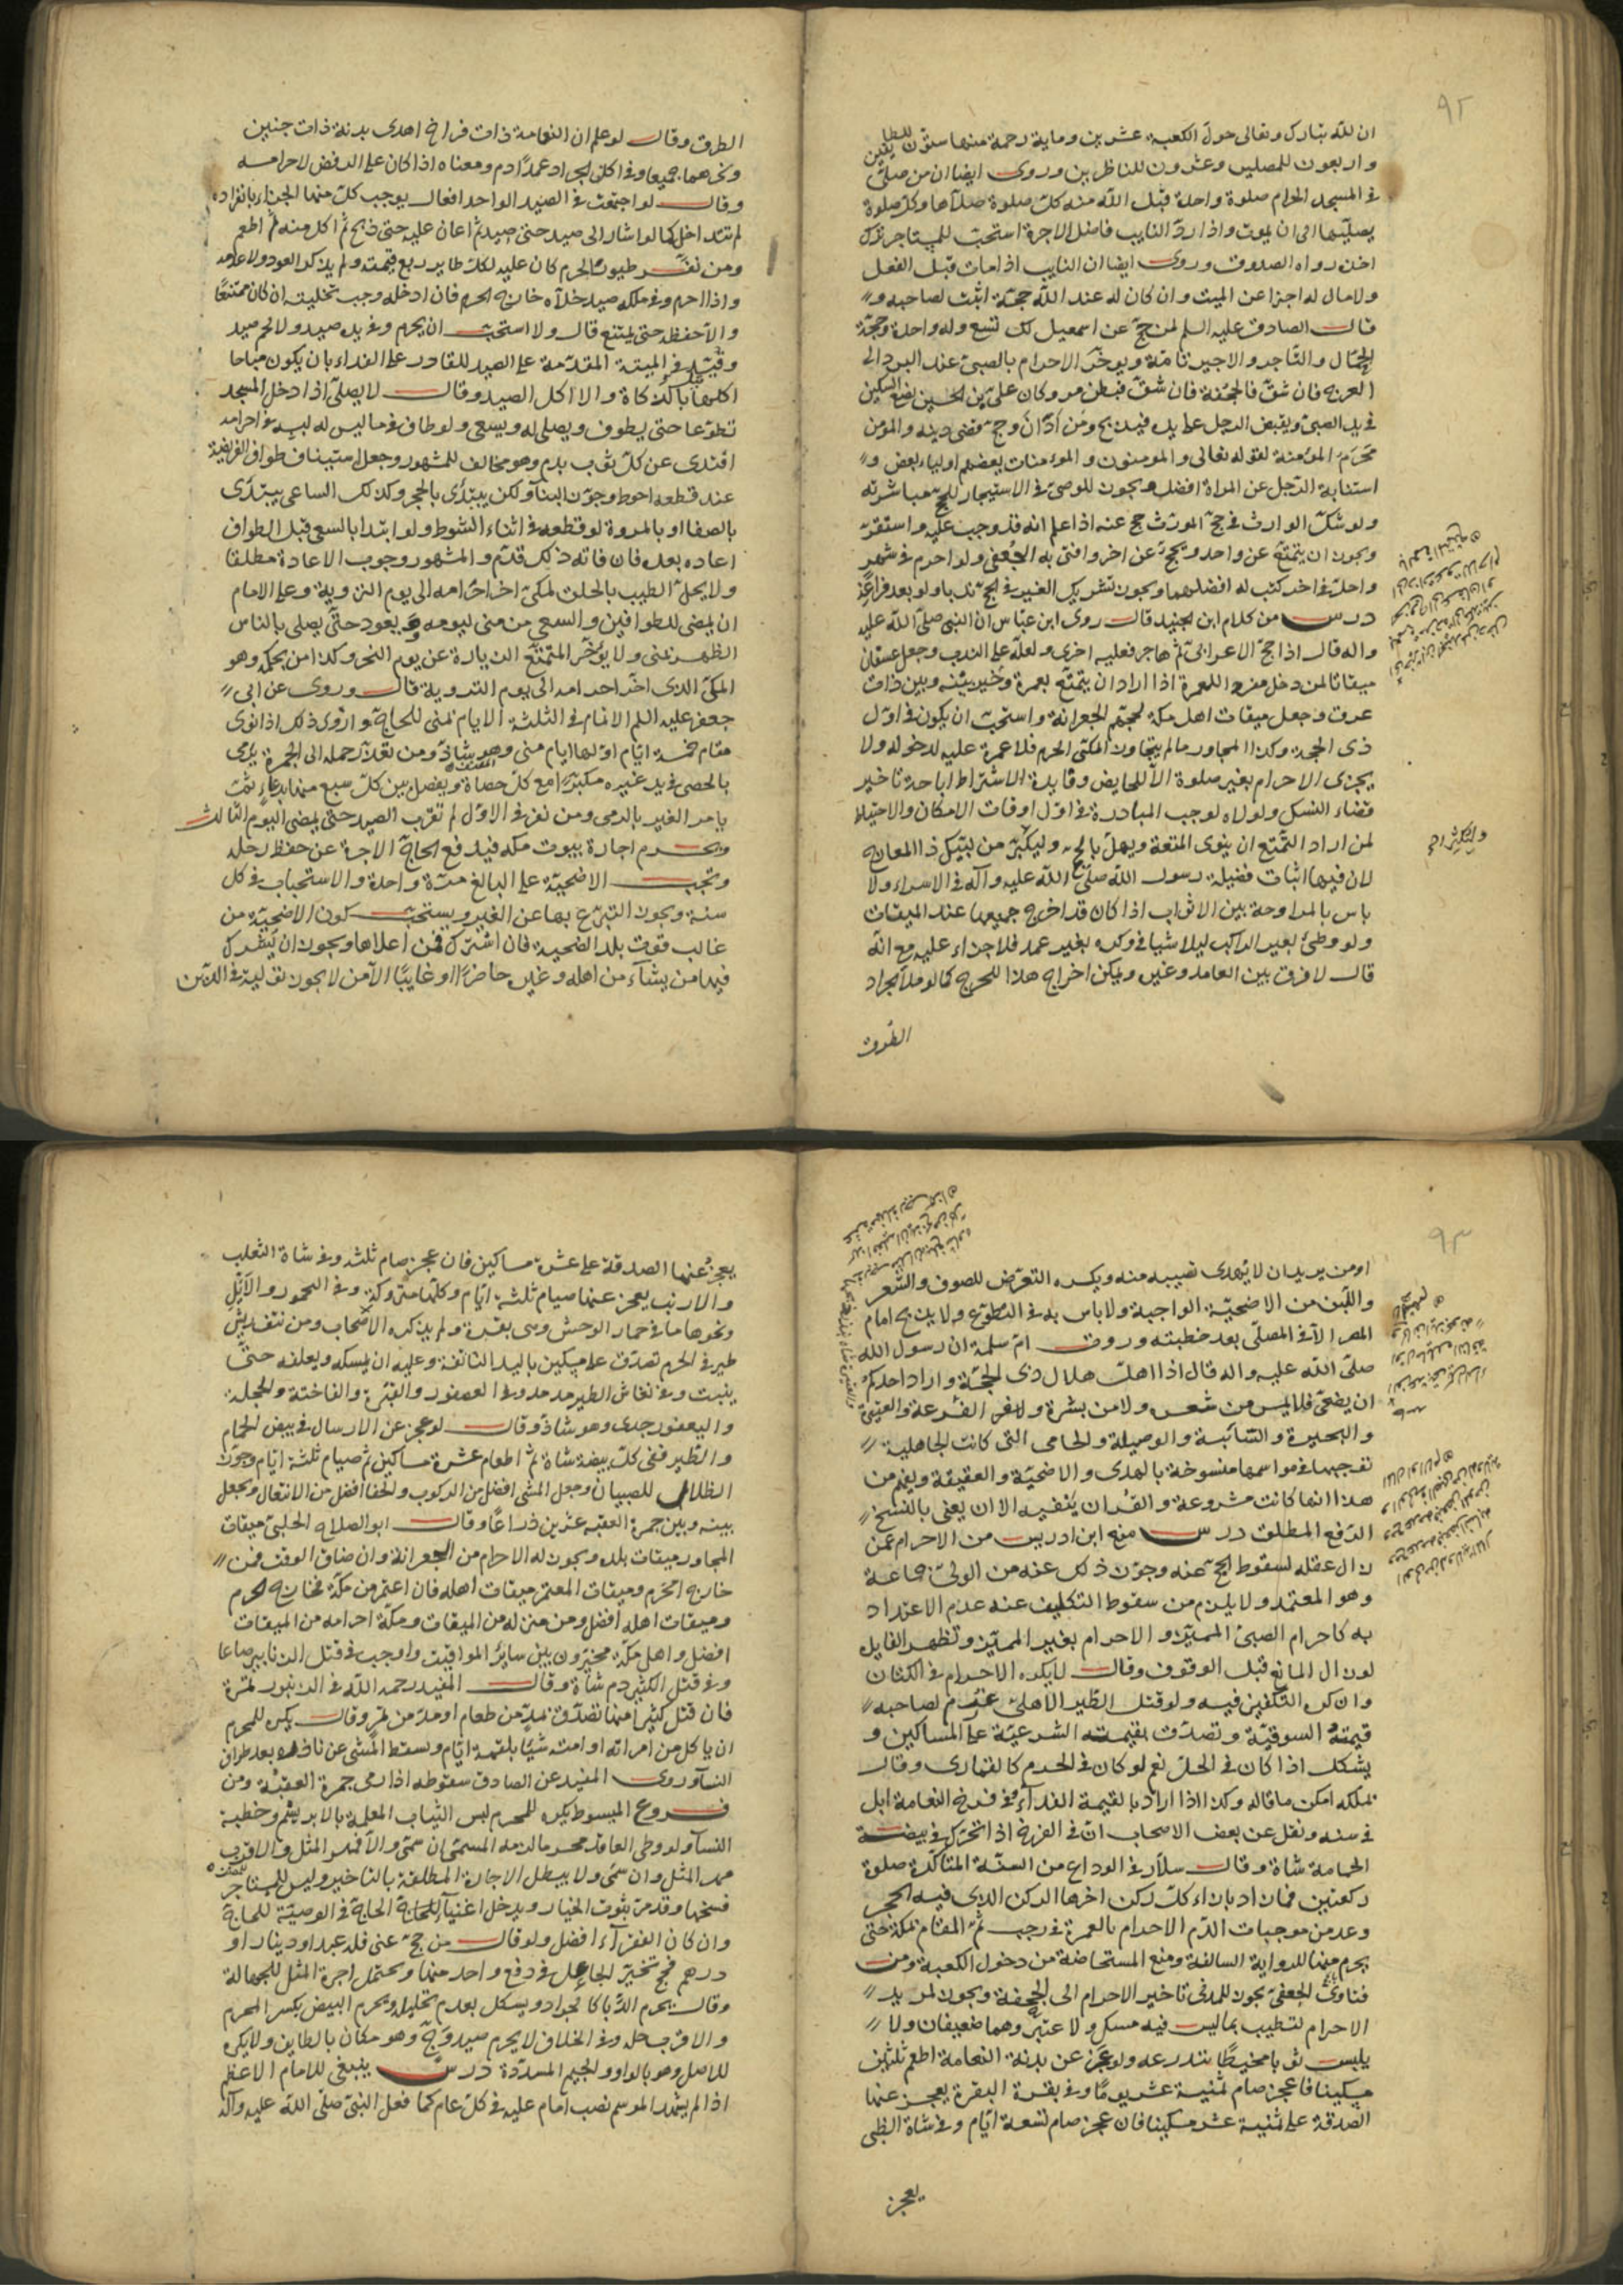 ٩٢
ان لله تبارك وتعالى حول الكعبة عشرين وماية رحمة منها ستون للطايفين
واربعون للمصلين وعشرون للناظرين وروى ايضا ان من صلى
في المسجد الحرام صلوة واحدة قبل الله منه كل صلوة صلاها وكل صلوة
يصليها الى ان يموت واذا ردّ النايب فاضل الاجرة استحب للمستاجر ترك
اخذه رواه الصدوق وروى ايضا ان النايب اذا مات قبل الفعل
ولا مال له اجزا عن الميت وان كان له عند الله حجة اثبت لصاحبه و
قال الصادق عليه السلم لمن حج عن اسمعيل لك تسع وله واحدة وحجة
الجمال والتاجر والاجير تامة ويوخر الاحرام بالصبي عند البرد الى
العرج فان شق فالجحفة فان شق فبطن مر وكان علي بن الحسين يضع السكين
في يد الصبي ويقبض الرجل على يده فيذبح ومن ادان وحج قضى دينه والمؤمن
محرم المؤمنة لقوله تعالى والمومنون والمومنات بعضهم اولياء بعض و
استنابة الرجل عن المراة افضل ويجوز للوصي في الاستيجار للحج مباشرته
ولو شك الوارث في حج المورث حج عنه اذا علم انه قد وجب عليه واستقر
ويجوز ان يتمتع عن واحد ويحج عن اخر وافتى به الجعفي ولو احرم في شهر
واحل في اخر كتب له افضلهما ويجوز تشريك الغير في الحج ندبا ولو بعد فراغه
درس من كلام ابن الجنيد قال روى ابن عباس ان النبي صلى الله عليه
واله قال اذا حج الاعرابي ثم هاجر فعليه اخرى ولعله على الندب وجعل عسفان
ميقاتا لمن دخل منه للعمرة اذا اراد ان يتمتع بعمرة وخير بينه وبين ذات
عرق وجعل ميقات اهل مكة لحجهم الجعرانة واستحب ان يكون في اول
ذي الحجة وكذا المجاور ما لم يتجاوز المكي الحرم فلا عمرة عليه لدخوله ولا
يجزى الاحرام بغير صلوة الا للحايض وفايدة الاشتراط اباحة تاخير
قضاء النسك ولولاه لوجب المبادرة في اول اوقات الامكان والاحتياط
لمن اراد التمتع ان ينوى المتعة ويهل بالحج وليكثر من لبيك ذا المعارج
لان فيها اثبات فضيلة رسول الله صلى الله عليه وآله في الاسراء ولا
باس بالمراوحة بين الاثواب اذا كان قد اخرج جميعها عند الميقات
ولو وطئ بعير الراكب ليلا شيا في وكره بغير عمد فلا جزاء عليه مع انه
قال لا فرق بين العامد وغيره ويمكن اخراج هذا للحرج كما لو ملأ الجراد
الطرق
الطرق وقال لو علم ان النعامة ذات فراخ اهدى بدنة ذات جنين
ونحرهما جميعا وفي اكل الجراد عمدا دم ومعناه اذا كان على الرفض لاحرامه
وقال لو اجتمعت في الصيد الواحد افعال يوجب كل منها الجزاء بانفراده
لم تتداخل كما لو اشار الى صيد حتى صيد ثم اعان عليه حتى ذبح ثم اكل منه ثم اطعم
ومن نفر طيور الحرم كان عليه لكل طاير ربع قيمته ولم يذكر العود ولا عدمه
واذا احرم وفي ملكه صيد خلاه خارج الحرم فان ادخله وجب تخليته ان كان ممتنعا
والا حفظه حتى يمتنع قال ولا استحب ان يحرم وفي يده صيد ولا لحم صيد
وقيد في الميتة المقدمة على الصيد للقادر على الفداء بان يكون مباحا
اكلها بالذكاة والا اكل الصيد وقال لا يصلى اذا دخل المسجد
تطوعا حتى يطوف ويصلى له ويسعى ولو طاف فيما ليس له لبسه في احرامه
افتدى عن كل ثوب بدم وهو مخالف للمشهور وجعل استيناف طواف الفريضة
عند قطعه احوط وجوز البنا ولكن يبتدى بالحجر وكذلك الساعي يبتدى
بالصفا او بالمروة لو قطعه في اثناء الشوط ولو ابتدا بالسعي قبل الطواف
اعاده بعده فان فاته ذلك قدّم والمشهور وجوب الاعادة مطلقا
ولا يحل الطيب بالحلق لمكي اخر احرامه الى يوم التروية وعلى الامام
ان يمضى للطوافين والسعي من منى ليومه ويعود حتى يصلى بالناس
الظهر بمنى ولا يؤخر المتمتع الزيارة عن يوم النحر وكذا من بحكمه وهو
المكي الذي اخر احرامه الى يوم التروية قال وروى عن ابى
جعفر عليه السلم الاتمام في الثلثة الايام بمنى للحاج وارى ذلك اذا نوى
مقام خمسة ايام اولها ايام منى وهو شاذ ومن تعذر حمله الى الجمرة يرمى
بالحصى في يد غيره مكبرا مع كل حصاة ويفصل بين كل سبع منها بدعاء ثمت
يامر الغير بالرمي ومن نفر في الاول لم تقرب الصيد حتى يمضى اليوم الثالث
ويحرم اجارة بيوت مكة فيدفع الحاج الاجرة عن حفظ رحله
وتجب الاضحية على البالغ مرة واحدة والاستحباب في كل
سنة ويجوز التبرع بها عن الغير ويستحب كون الاضحية من
غالب قوت بلد الضحية فان اشترك فمن اعلاها ويجوز ان يشرك
فيها من يشآء من اهله وغيره حاضرا او غايبا الا من لا يجوز توليه في الدين
٩٣
او من يريد ان لا يهدى نصيبه منه ويكره التعرض للصوف والشعر
واللبن من الاضحية الواجبة ولا باس به في التطوع ولا يذبح امام
المصر الا في المصلى بعد خطبته وروت ام سلمة ان رسول الله
صلى الله عليه واله قال اذا اهل هلال ذى الحجة واراد احدكم
ان يضحى فلا يمس من شعره ولا من بشرة ولا ظفر الفرعة والعتيرة
والبحيرة والسائبة والوصيلة والحامى التى كانت الجاهلية
توجبها في مواسمها منسوخة بالهدى والاضحية والعقيقة ويفهم من
هذا انها كانت مشروعة والقران ينفيه الا ان يعنى بالنسخ
الرفع المطلق درس منع ابن ادريس من الاحرام عمن
زال عقله لسقوط الحج عنه وجوز ذلك عنه من الولى جماعة
وهو المعتمد ولا يلزم من سقوط التكليف عنه عدم الاعتداد
به كاحرام الصبى المميز والاحرام بغير المميز وتظهر الفايدة
لو زال المانع قبل الوقوف وقال لا يكره الاحرام في الكتان
وان كره التكفين فيه ولو قتل الطير الاهلى غرم لصاحبه
قيمته السوقية وتصدق بقيمته الشرعية على المساكين و
يشكل اذا كان في الحل نعم لو كان في الحرم كالقمارى وقال
بملكه امكن ما قاله وكذا اذا اراد بالقيمة الفدآء وفي فرخ النعامة ابل
في سنه ونقل عن بعض الاصحاب ان في الفرخ اذا تحرك في بيضة
الحمامة شاة وقال سلار في الوداع من السنة المتاكدة صلوة
ركعتين فما زاد بازاء كل ركن اخرها الركن الذى فيه الحجر
وعد من موجبات الدم الاحرام بالعمرة في رجب ثم المقام بمكة حتى
يحرم منها للرواية السالفة ومنع المستحاضة من دخول الكعبة ومن
فتاوى الجعفى يجوز للمدنى تاخير الاحرام الى الجحفة ويجوز لمريد
الاحرام لتطيب بما ليس فيه مسك ولا عنبر وهما ضعيفان ولا
يلبس ثوبا مخيطا يتدرعه ولو عجز عن بدنة النعامة اطعم ثلثين
مسكينا فان عجز صام ثمنية عشر يوما وفي بقرة البقرة يعجز عنها
الصدقة على ثمنية عشر مسكينا فان عجز صام تسعة ايام وفي شاة الظبى
يعجز
يعجز عنها الصدقة على عشرة مساكين فان عجز صام ثلثه وفي شاة الثعلب
والارنب يعجز عنها صيام ثلثة ايام وكلها متروكة وفي اليحمور والايل
ونحوها ما في حمار الوحش وهى بقرة ولم يذكره الاصحاب ومن نتف ريش
طير في الحرم تصدق على مسكين باليد الناتفة وعليه ان يمسكه ويعلفه حتى
ينبت وفي نغاش الطير مد مد وفي العصفور والقبرة والفاختة والحجلة
واليعفور جدى وهو شاذ وقال لو عجز عن الارسال في بيض الحمام
والطير ففى كل بيضة شاة ثم اطعام عشرة مساكين ثم صيام ثلثة ايام وجوز
الظلال للصبيان وجعل المشى افضل من الركوب والحفا افضل من الانتعال وتجعل
بينه وبين جمرة العقبة عشرين ذراعا وقال ابو الصلاح الحلبى ميقات
المجاور ميقات بلده ويجوز له الاحرام من الجعرانة وان ضاق الوقت فمن
خارج الحرم وميقات المعتمر ميقات اهله فان اعتمر من مكة فخارج الحرم
وميقات اهله افضل ومن منزله من الميقات ومكة احرامه من الميقات
افضل واهل مكة مخيرون بين سائر المواقيت واوجب في قتل الزنابير صاعا
وفي قتل الكثير دم شاة وقال المفيد رحمه الله في الزنبور تمرة
فان قتل كثيرا منها تصدق بمد من طعام او مد من تمر وقال يكره للمحرم
ان ياكل من امراته او امته شيا بلقمة ايام ويسقط المشى عن ناذره بعد طواف
النسآ وروى المفيد عن الصادق سقوطه اذا رمى جمرة العقبة ومن
فروع المبسوط يكره للمحرم لبس الثياب المعلمة بالابريسم وخطبة
النسآ ولو وطى العاقد محرما لزمه المسمى ان سمى والا فمهر المثل والاقرب
مهر المثل وان سمى ولا يبطل الاجارة المطلقة بالتاخير وليس للمستاجر
فسخها وقد مر ثبوت الخيار ويدخل اغنيآء الحاج في الوصية للحاج
وان كان الفقرآء افضل ولو قال من حج عنى فله عبد او دينار او
درهم فحج تخير الجاعل في دفع واحد منها ويحتمل اجرة المثل للجهالة
وقال يحرم الدبا كالجراد ويشكل بعدم تحليله ويحرم البيض بكسر المحرم
والاقرب حله وفي الخلاف لا يحرم صيد وج وهو مكان بالطايف ولا يكره
للاصل وهو بالواو والجيم المشددة درس ينبغى للامام الاعظم
اذا لم يشهد الموسم نصب امام عليه في كل عام كما فعل النبى صلى الله عليه وآله